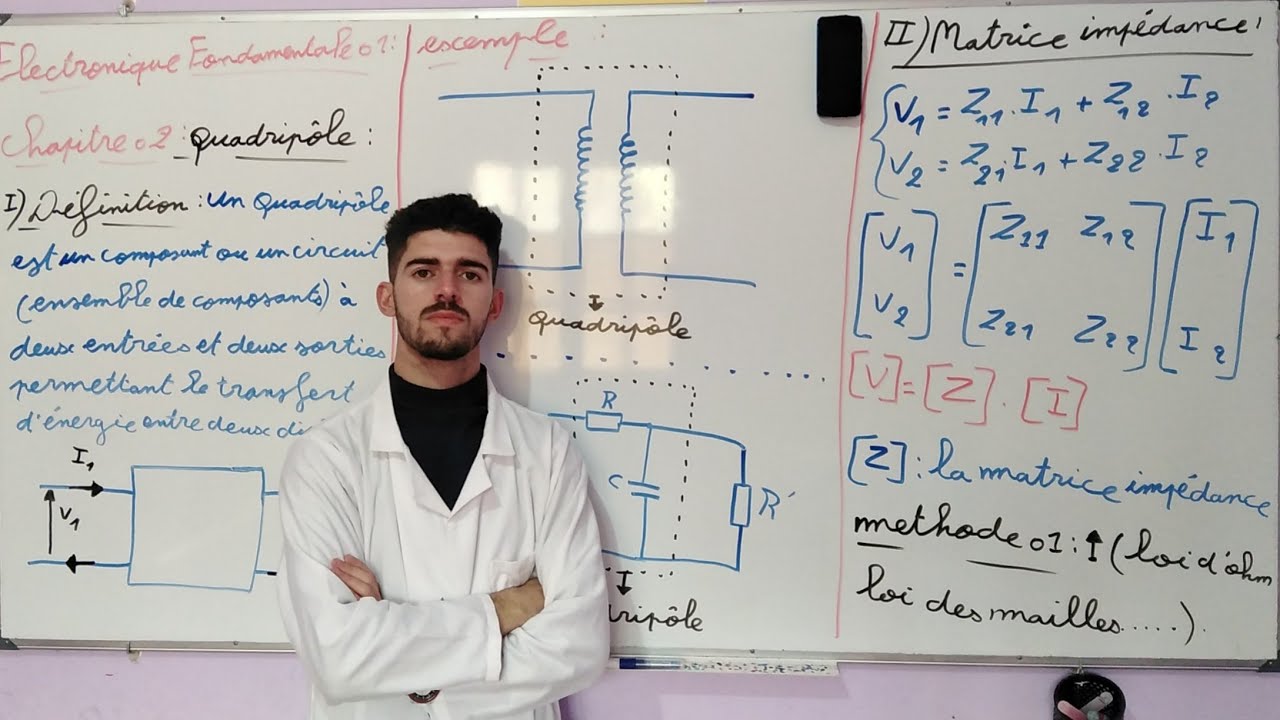 Electronique Fondamentale 01:
Chapitre 02: Quadripôle:
I) Définition: Un Quadripôle
est un composant ou un circuit
(ensemble de composants) à
deux entrées et deux sorties
permettant le transfert
d'énergie entre deux
I1
V1
escemple :
Quadripôle
R
C
R'
ripôle
II) Matrice impédance:
V1 = Z11 . I1 + Z12 . I2
V2 = Z21 . I1 + Z22 . I2
[V1 V2] = [Z11 Z12 Z21 Z22] [I1 I2]
[V] = [Z] . [I]
[Z] : la matrice impédance
methode 01: ↑ (loi d'ohm
loi des mailles.....).